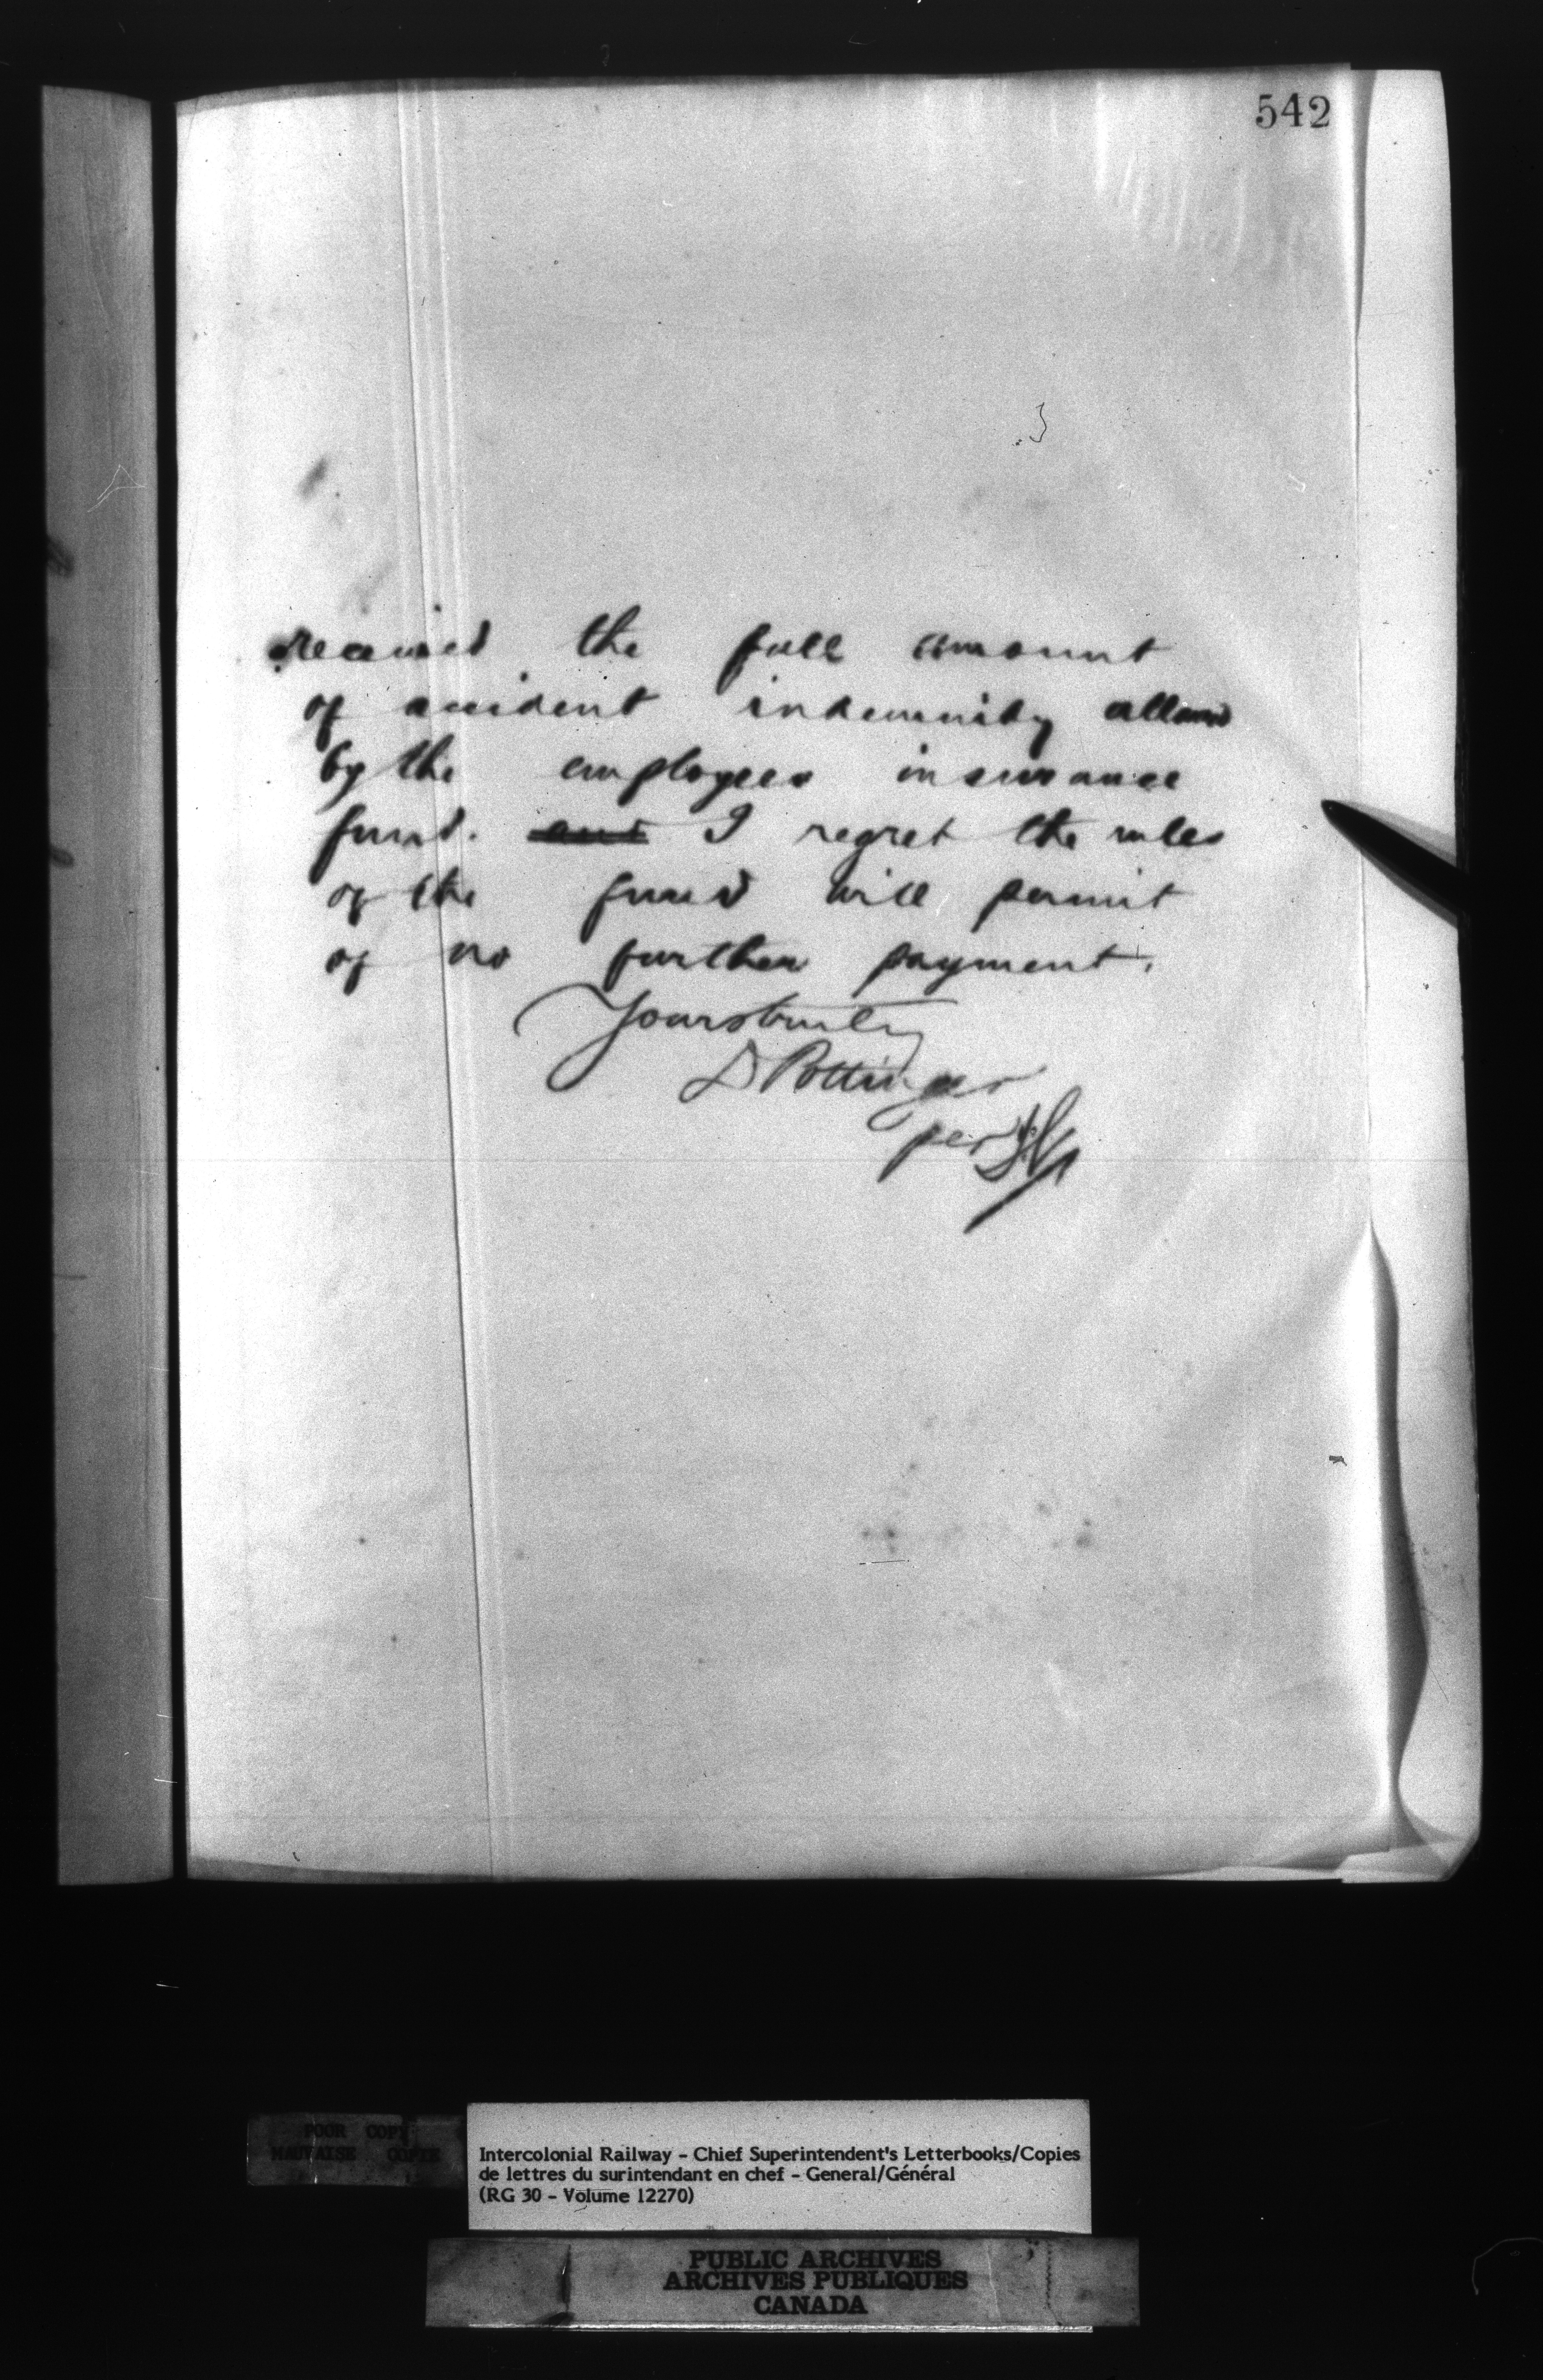 542
received the full amount
of accident indemnity allowed
by the employees insurance
fund. and I regret the rules
of the fund will permit
of no further payment.
Yours truly
D Pottinger
per
POOR COPY
MAUVAISE COPIE
Intercolonial Railway - Chief Superintendent's Letterbooks/Copies
de lettres du surintendant en chef - General/Général
(RG 30 - Volume 12270)
PUBLIC ARCHIVES
ARCHIVES PUBLIQUES
CANADA